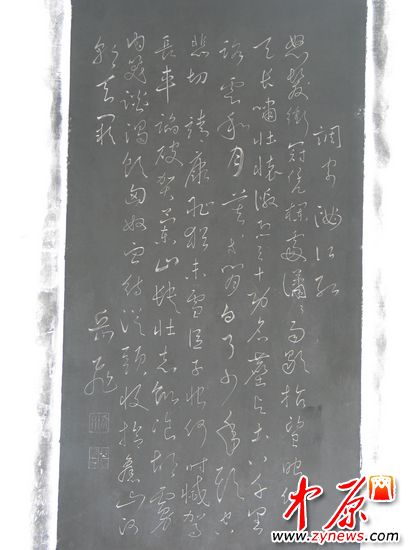 調寄滿江紅
怒髮衝冠凭欄處瀟瀟雨歇抬望眼仰
天長嘯壯懷激烈三十功名塵與土八千里
路雲和月莫等閒白了少年頭空
悲切靖康恥猶未雪臣子恨何時滅駕
長車踏破賀蘭山缺壯志飢飡胡虜
肉笑談渴飲匈奴血待從頭收拾舊山河
朝天闕
岳飛
中原网
www.zynews.com